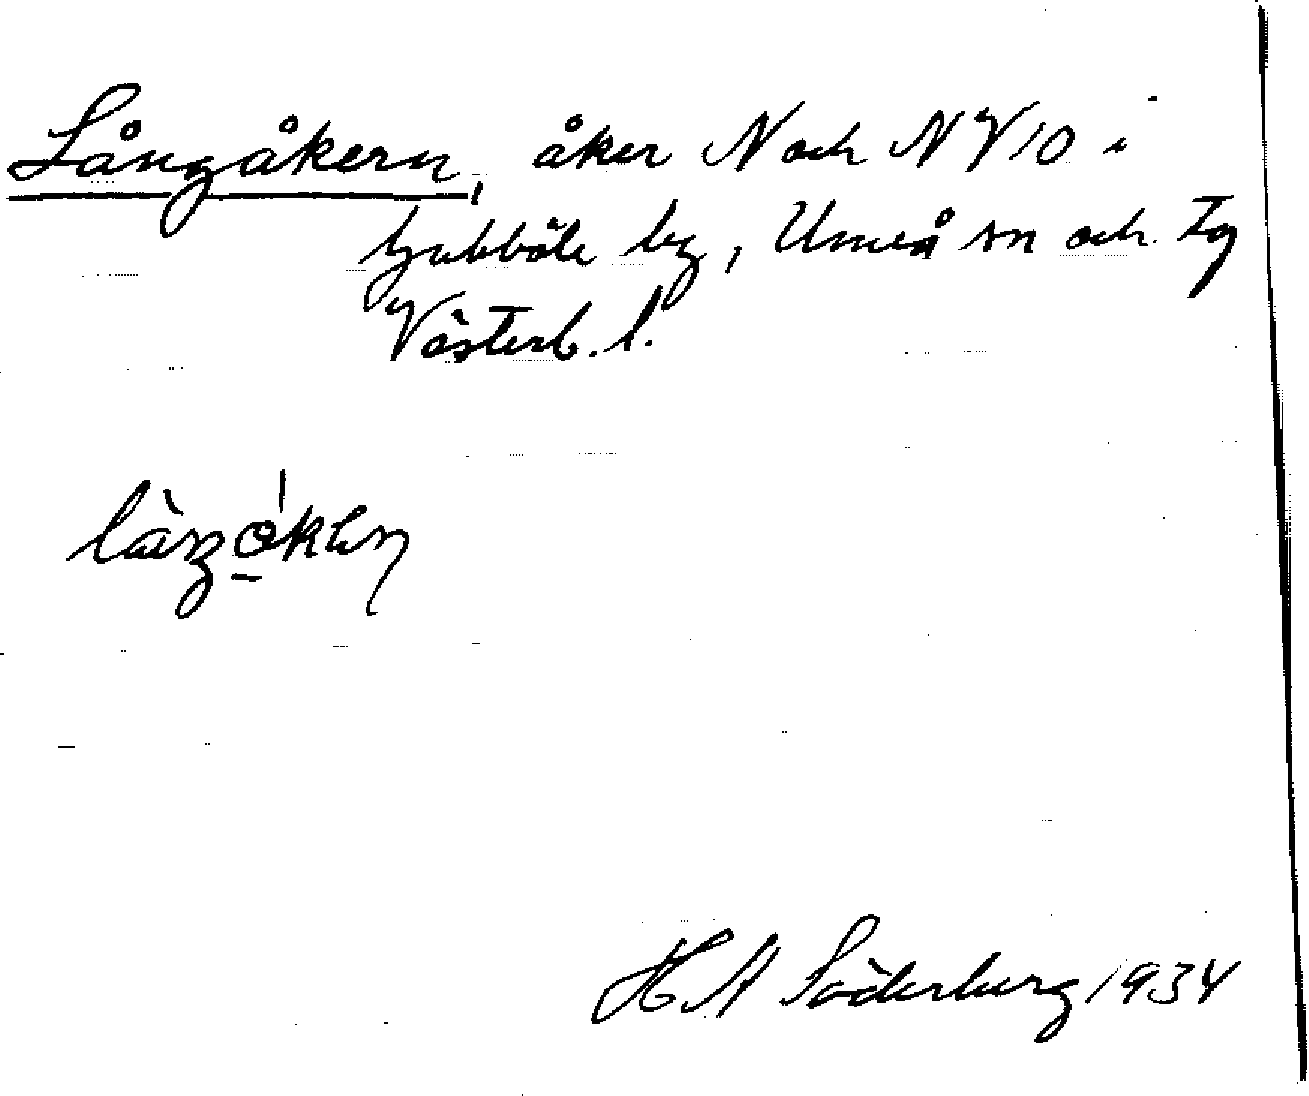 Långåkern, åker N och NV 10 i
Gubböle by, Umeå sn och tg
Västerb. l.
H A Söderberg 1934